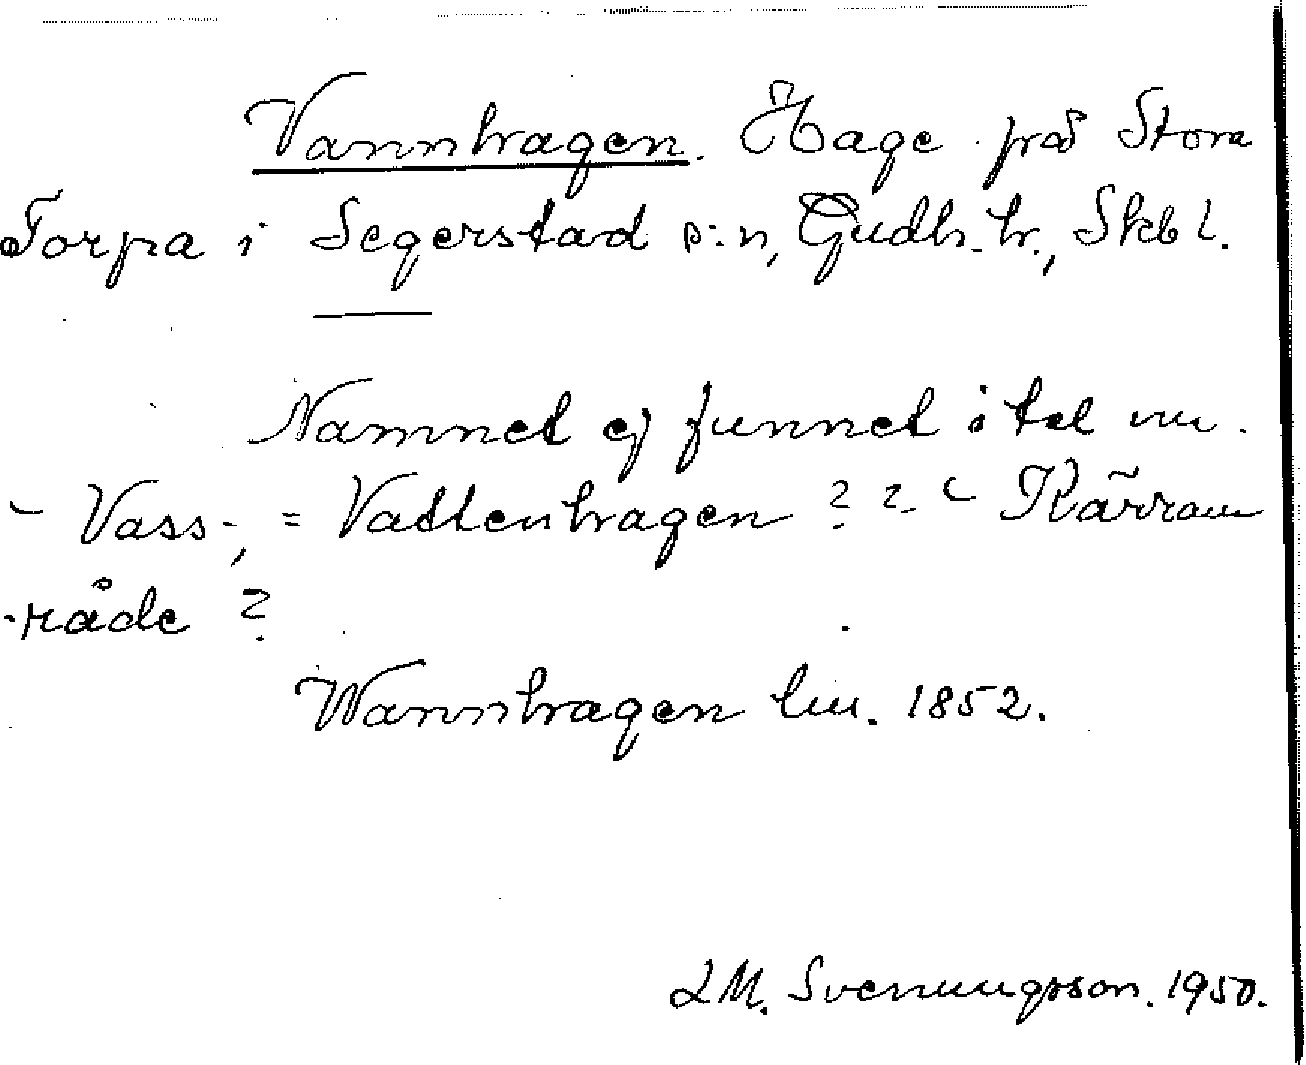 Vannhagen. Hage på Stora
Torpa i Segerstad s:n, Gudh. hr., Skbl.
Namnet ej funnet i tal nu.
- Vass-, = Vattenhagen ? ? - Kärrom
-råde ?
Wannhagen lm. 1852.
LM. Svenungsson. 1950.